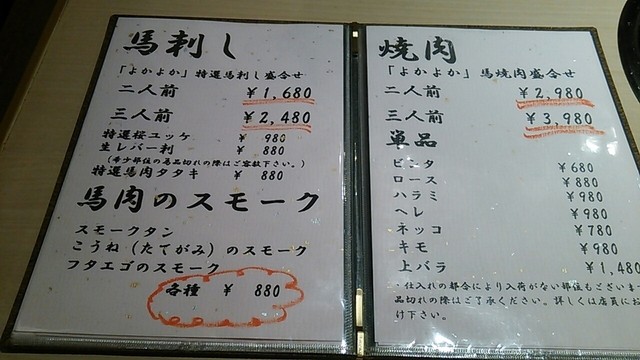 馬刺し
「よかよか」特選馬刺し盛合せ
二人前 ¥1,680
三人前 ¥2,480
特選桜ユッケ ¥ 980
生レバー刺 ¥ 880
(希少部位の為品切れの際はご容赦下さい。)
特選馬肉タタキ ¥ 880
馬肉のスモーク
スモークタン
こうね(たてがみ)のスモーク
フタエゴのスモーク
各種 ¥ 880
焼肉
「よかよか」馬焼肉盛合せ
二人前 ¥2,980
三人前 ¥3,980
単品
ビンタ ¥680
ロース ¥880
ハラミ ¥980
ヘレ ¥980
ネッコ ¥780
キモ ¥980
上バラ ¥1,480
・仕入れの都合により入荷がない部位もございます
品切れの際はご了承ください。詳しくは店員にお
け下さい。